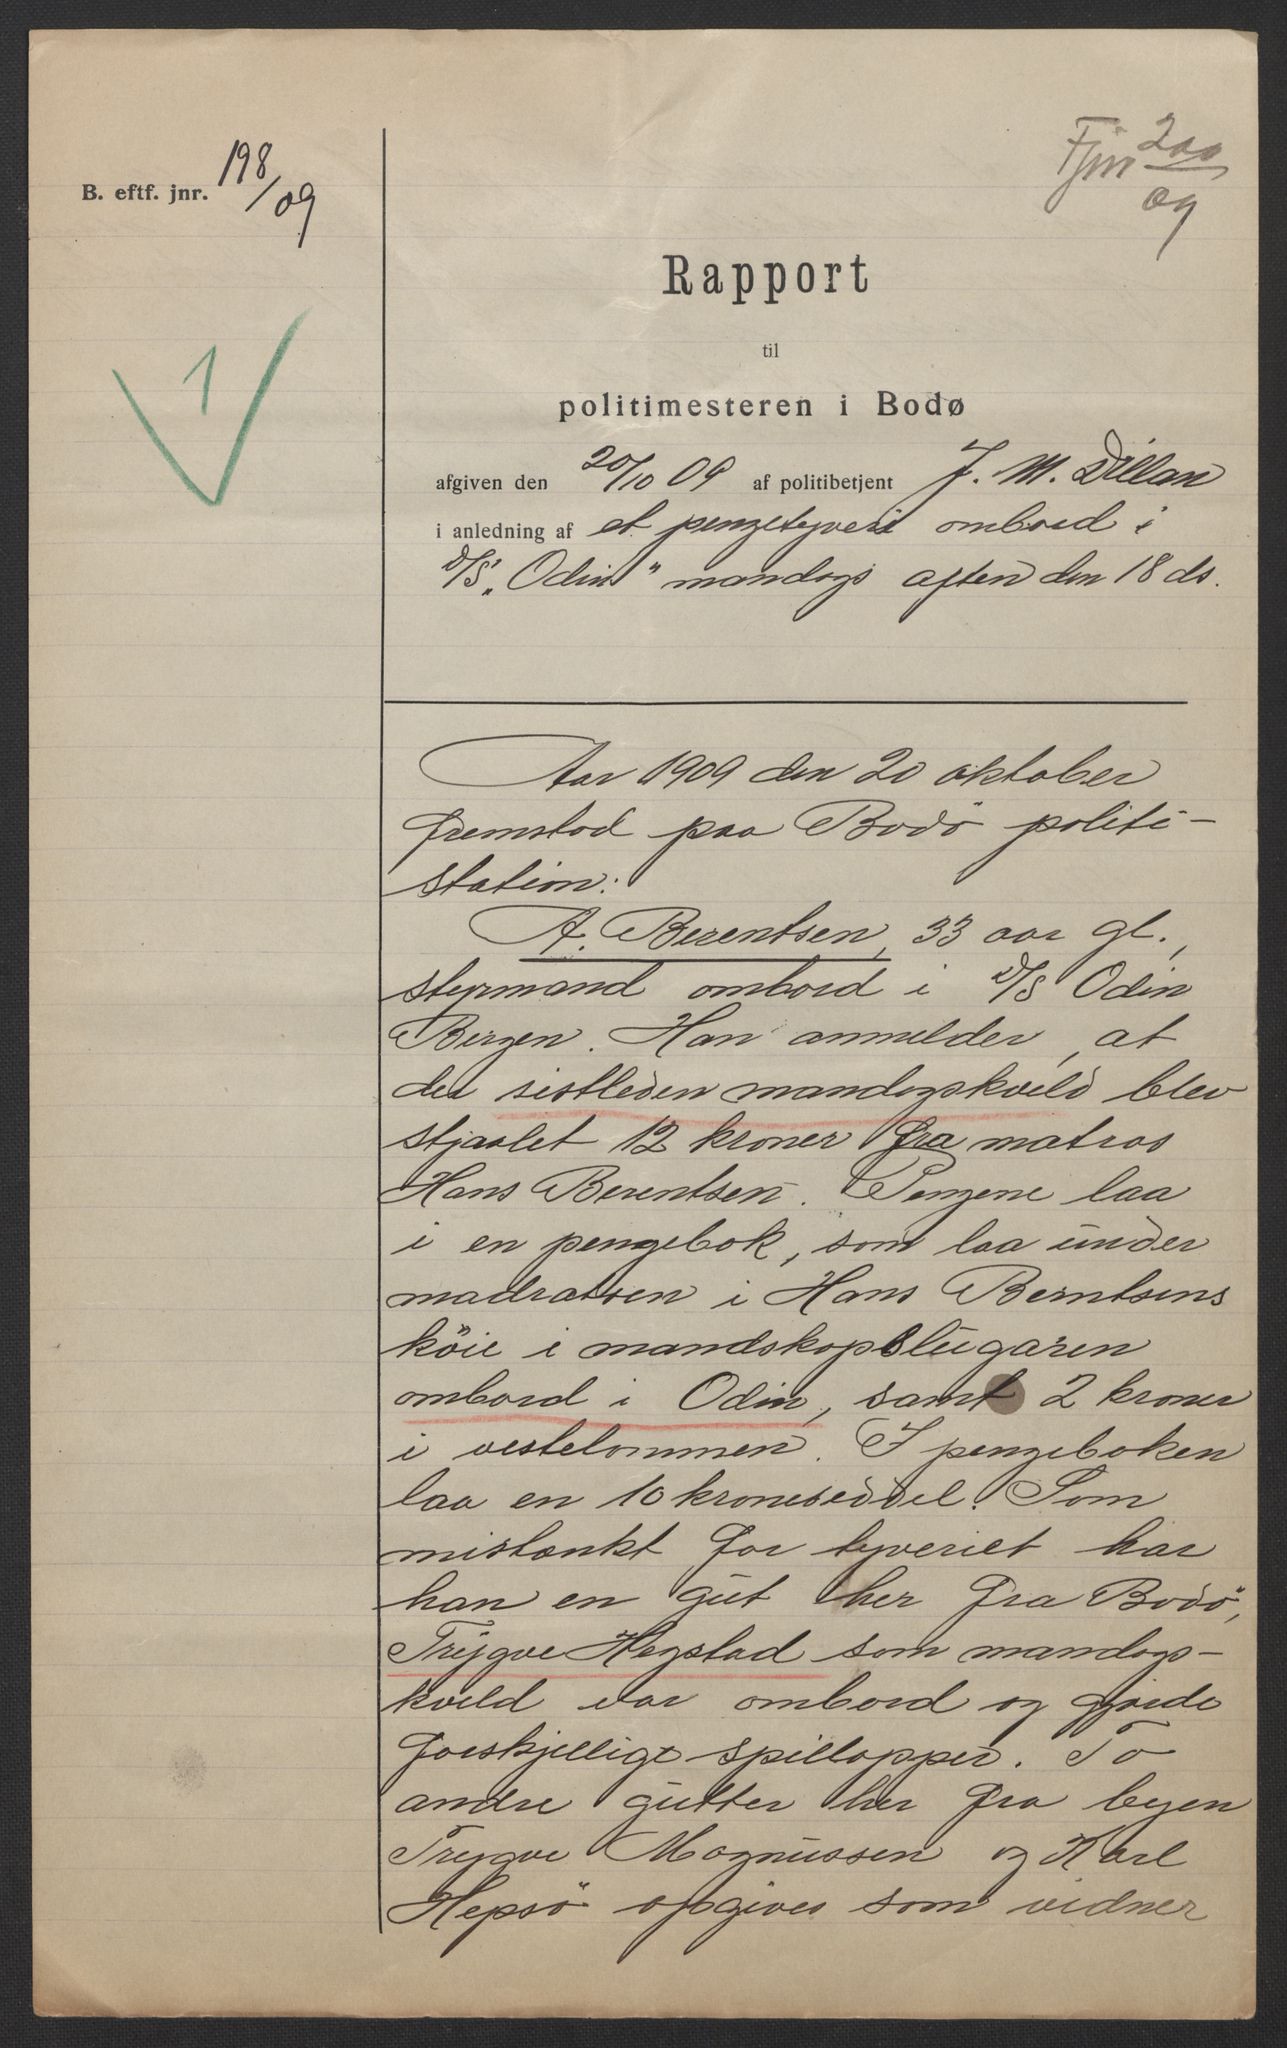 B. eftf. jnr. 198/09
Fjnr 200/09
1
Rapport
til
politimesteren i Bodø
afgiven den 20/10 09 af politibetjent J. M. Dillan
i anledning af et pengetyveri ombord i
D/S „Odin" mandags aften den 18 ds.
Aar 1909 den 20 oktober
fremstod paa Bodö politi-
station:
A. Berentsen, 33 aar gl.,
styrmand ombord i D/S Odin
Bergen. Han anmelder, at
der sistleden mandagskveld blev
stjaalet 12 kroner fra matros
Hans Berentsen. Pengene laa
i en pengebok, som laa under
madratsen i Hans Berntsens
köie i mandskapslugaren
ombord i Odin, samt 2 kroner
i vestelommen. I pengeboken
laa en 10 kroneseddel. Som
mistænkt for tyveriet har
han en gut her fra Bodö,
Trygve Hegstad som mandags-
kveld var ombord og gjorde
forskjellige spillopper. To
andre gutter her fra byen
Trygve Magnussen og Karl
Hepsö opgives som vidner